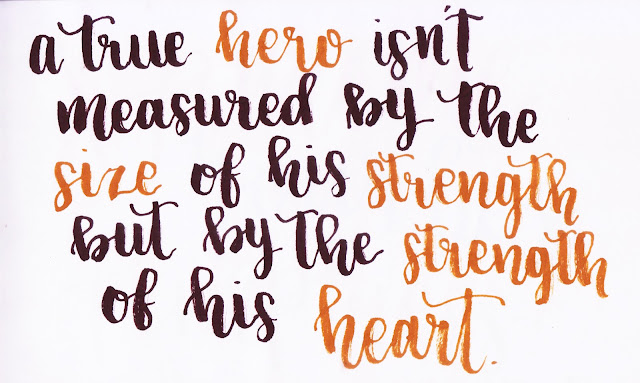 a true hero isn't
measured by the
size of his strength
but by the strength
of his heart.